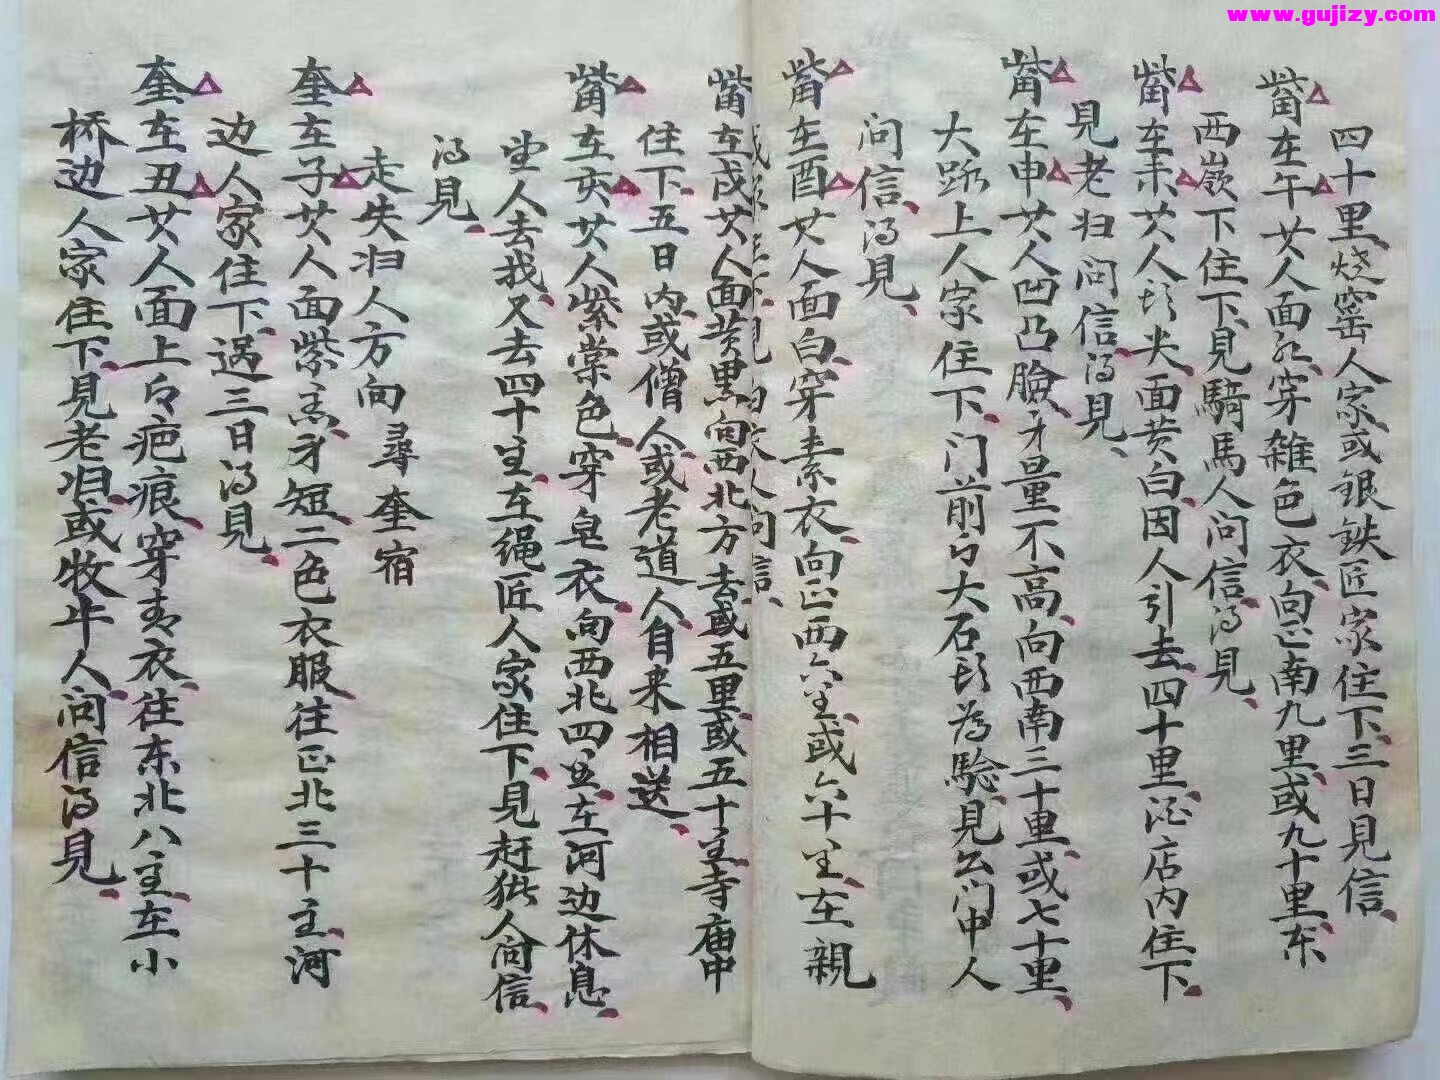 www.gujizy.com
四十里烧窑人家或银铁匠家住下三日見信
觜在午女人面红穿雑色衣向正南九里或九十里东
西嶺下住下見騎馬人问信得見
觜在未女人头尖面黄白因人引去四十里酒店内住下
見老妇问信得見
觜在申女人凹凸臉身量不高向西南三十里或七十里
大路上人家住下门前有大石头為驗見公门中人
问信得見
觜在酉女人面白穿素衣向正西六里或六十里在親
人问信
觜在戌女人面黄黑向西北方去或五里或五十里寺庙中
住下五日内或僧人或老道人自来相送
觜在亥女人紫棠色穿皂衣向西北四里在河边休息
坐人去找又去四十里在绳匠人家住下見赶猪人问信
得見
走失妇人方向尋奎宿
奎在子女人面紫黑身短二色衣服往正北三十里河
边人家住下过三日得見
奎在丑女人面上有疤痕穿青衣往东北八里在小
桥边人家住下見老妇或牧牛人问信得見